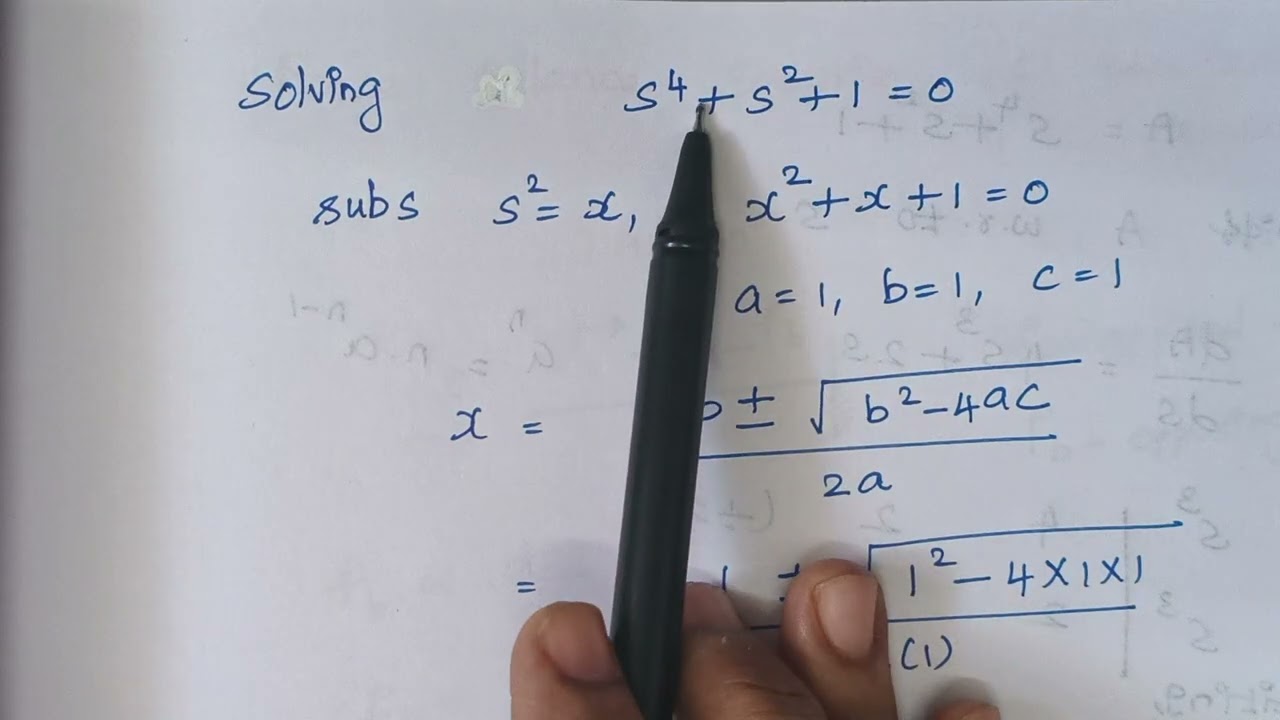 Solving s⁴ + s² + 1 = 0
subs s² = x, x² + x + 1 = 0
a = 1, b = 1, c = 1
x = b ± √(b² - 4ac) / 2a
= 1 ± √(1² - 4×1×1) / (1)